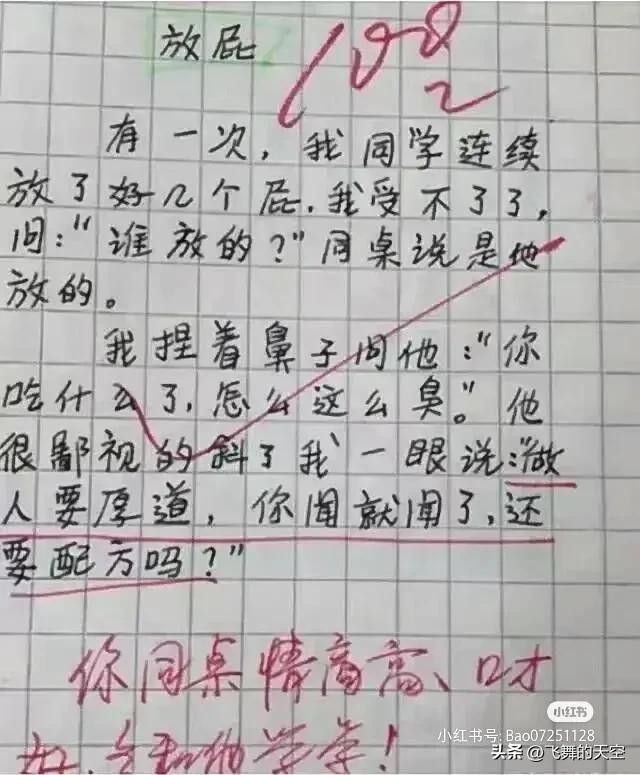 放屁 100
有一次，我同学连续
放了好几个屁.我受不了了，
问："谁放的？"同桌说是他
放的。
我捏着鼻子问他："你
吃什么了，怎么这么臭。"他
很鄙视的斜了我一眼说："做
人要厚道，你闻就闻了，还
要配方吗？"
你同桌情商高、口才
好，多和他学学！
小红书
小红书号：Bao07251128
头条@飞舞的天空